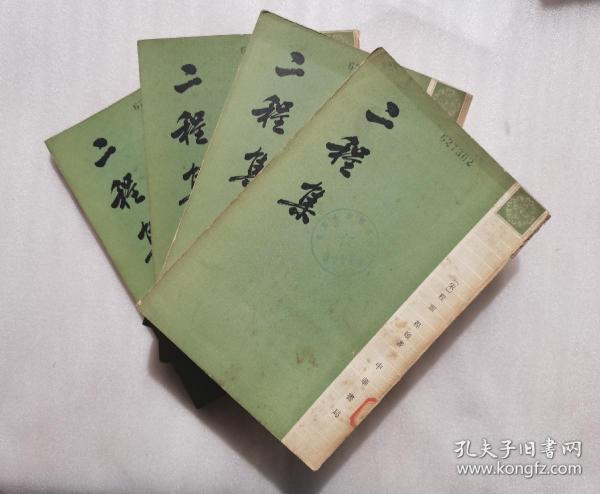 二程集
二程集
二程集
二程集
627362
〔宋〕程颢 程颐著
中華書局
孔夫子旧书网
www.kongfz.com